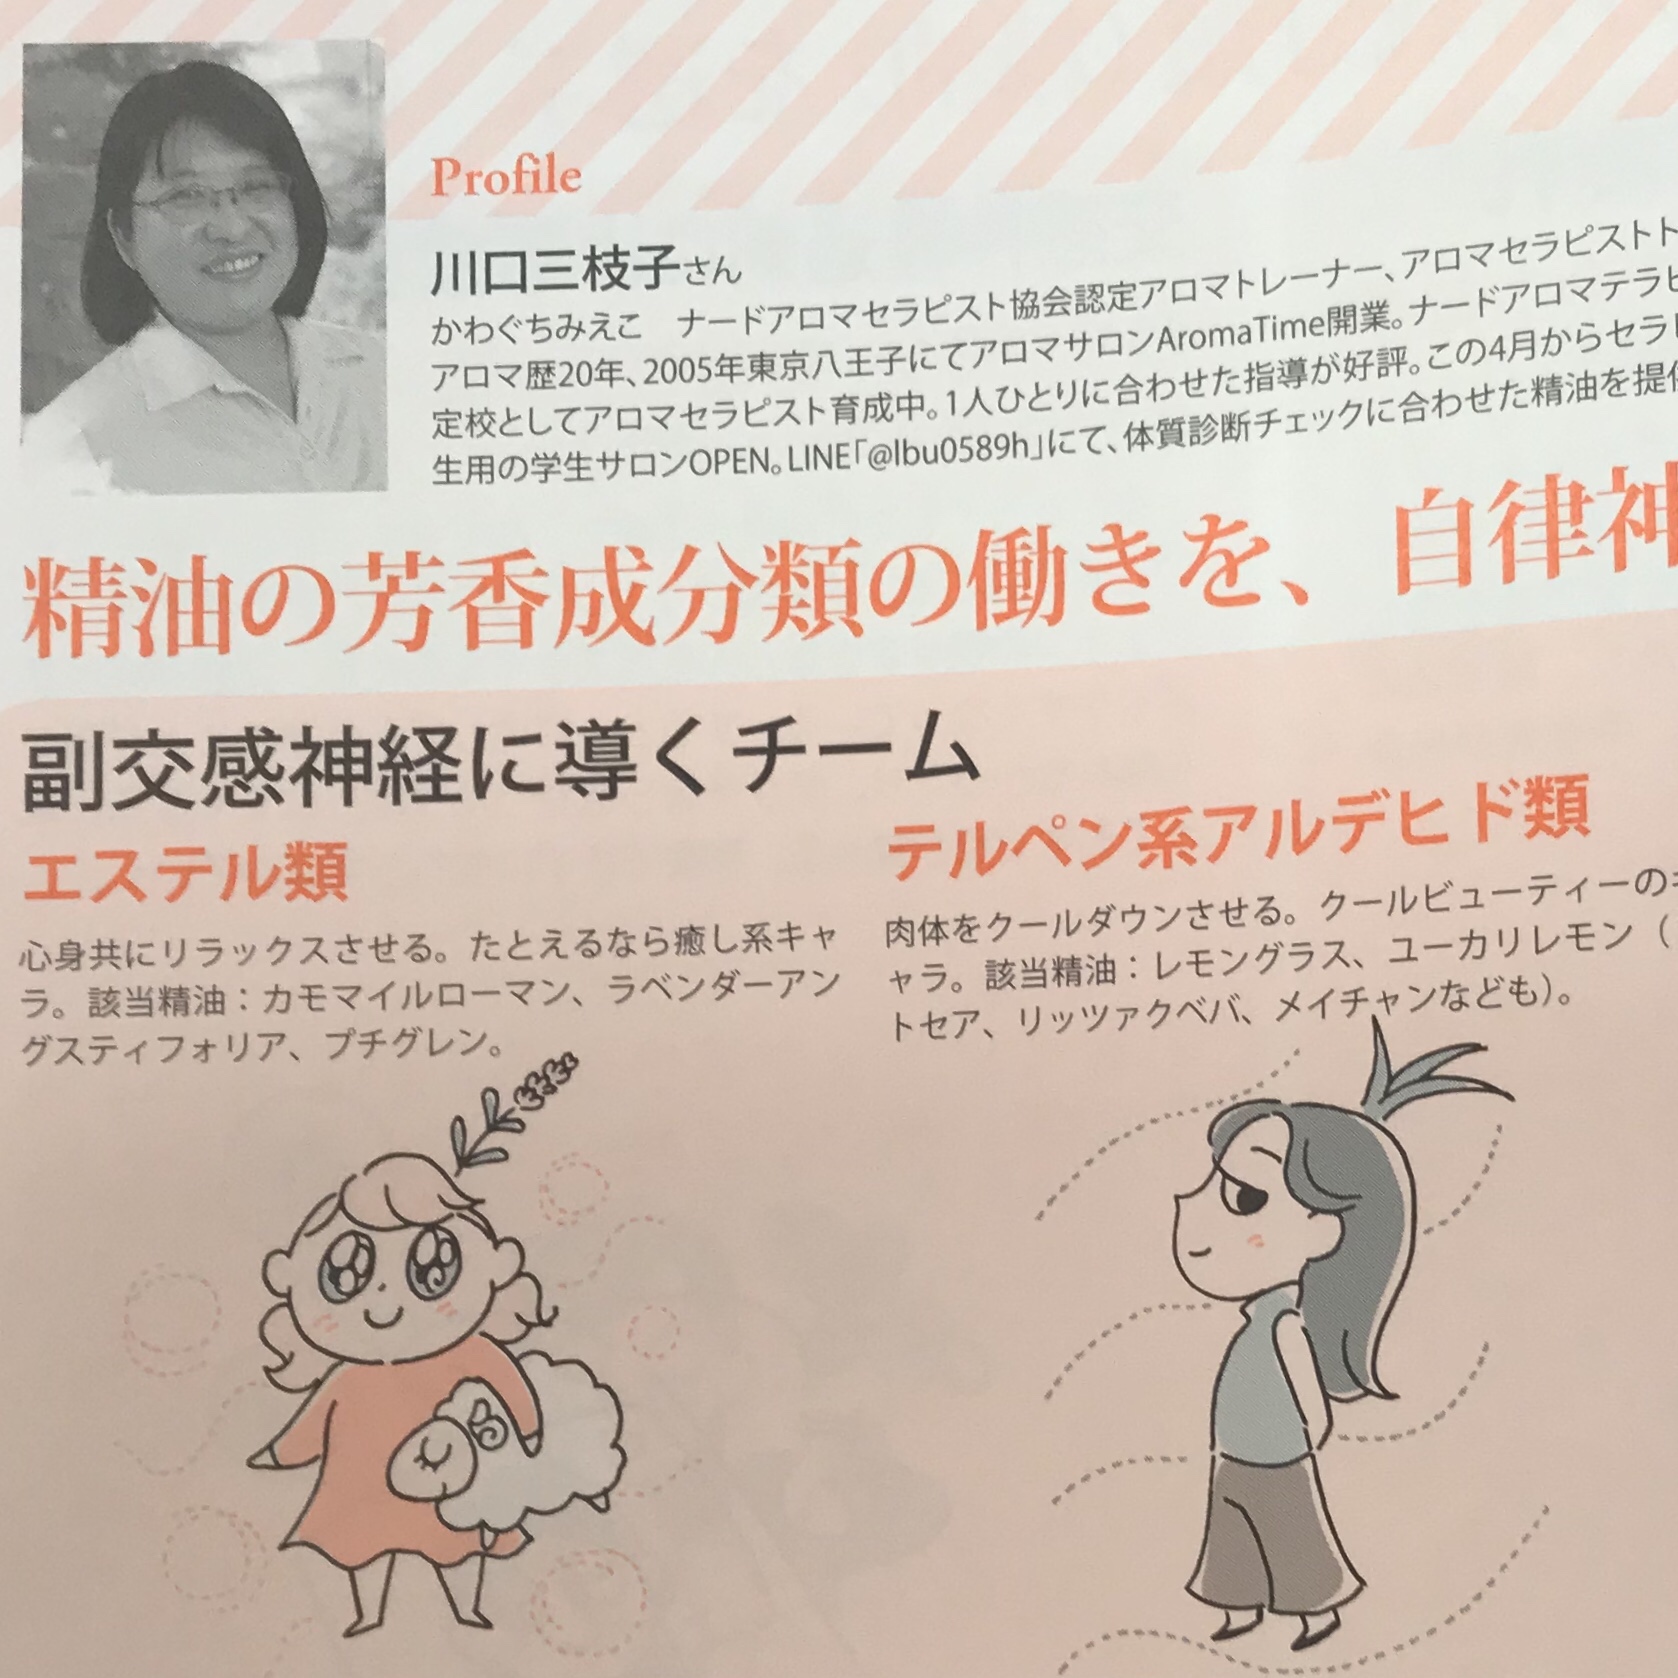 Profile
川口三枝子さん
かわぐちみえこ　ナードアロマセラピスト協会認定アロマトレーナー、アロマセラピストト
アロマ歴20年、2005年東京八王子にてアロマサロンAromaTime開業。ナードアロマテラピ
定校としてアロマセラピスト育成中。1人ひとりに合わせた指導が好評。この4月からセラピ
生用の学生サロンOPEN。LINE「@lbu0589h」にて、体質診断チェックに合わせた精油を提供
精油の芳香成分類の働きを、自律神
副交感神経に導くチーム
エステル類
心身共にリラックスさせる。たとえるなら癒し系キャ
ラ。該当精油：カモマイルローマン、ラベンダーアン
グスティフォリア、プチグレン。
テルペン系アルデヒド類
肉体をクールダウンさせる。クールビューティーのキ
ャラ。該当精油：レモングラス、ユーカリレモン（
トセア、リッツァクベバ、メイチャンなども）。